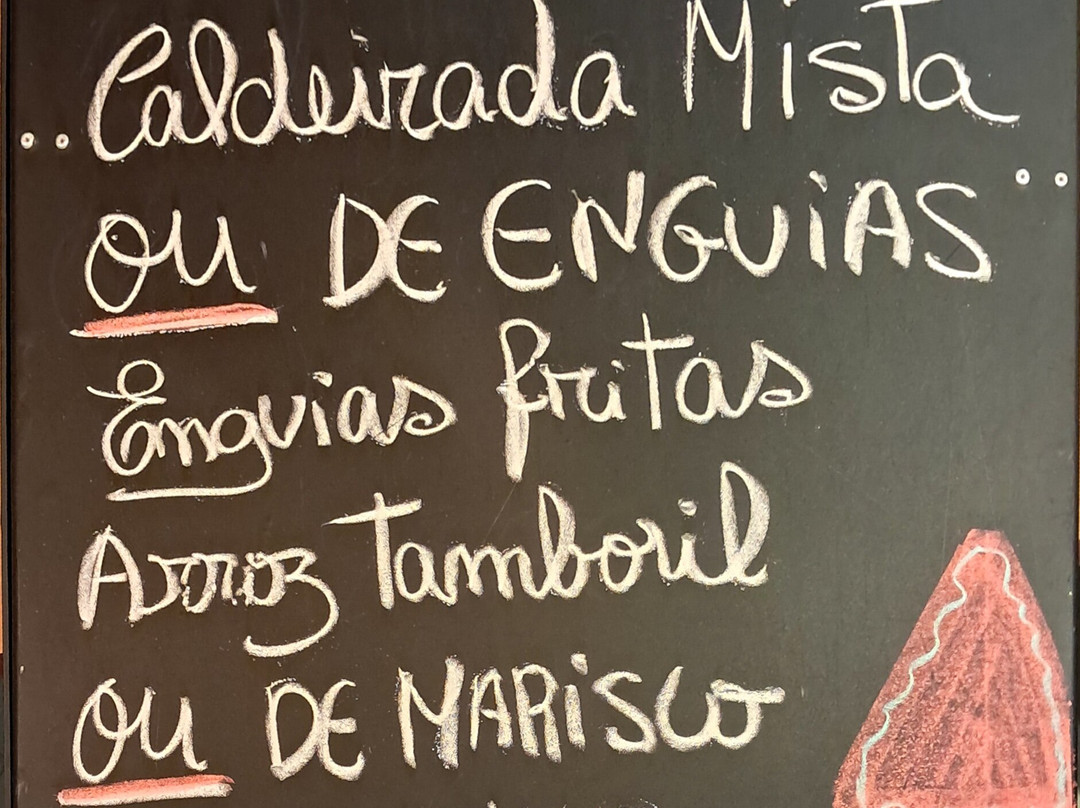 Caldeirada Mista
ou DE ENGUiAS
Enguias fritas
Arroz Tamboril
ou DE MARiSCO